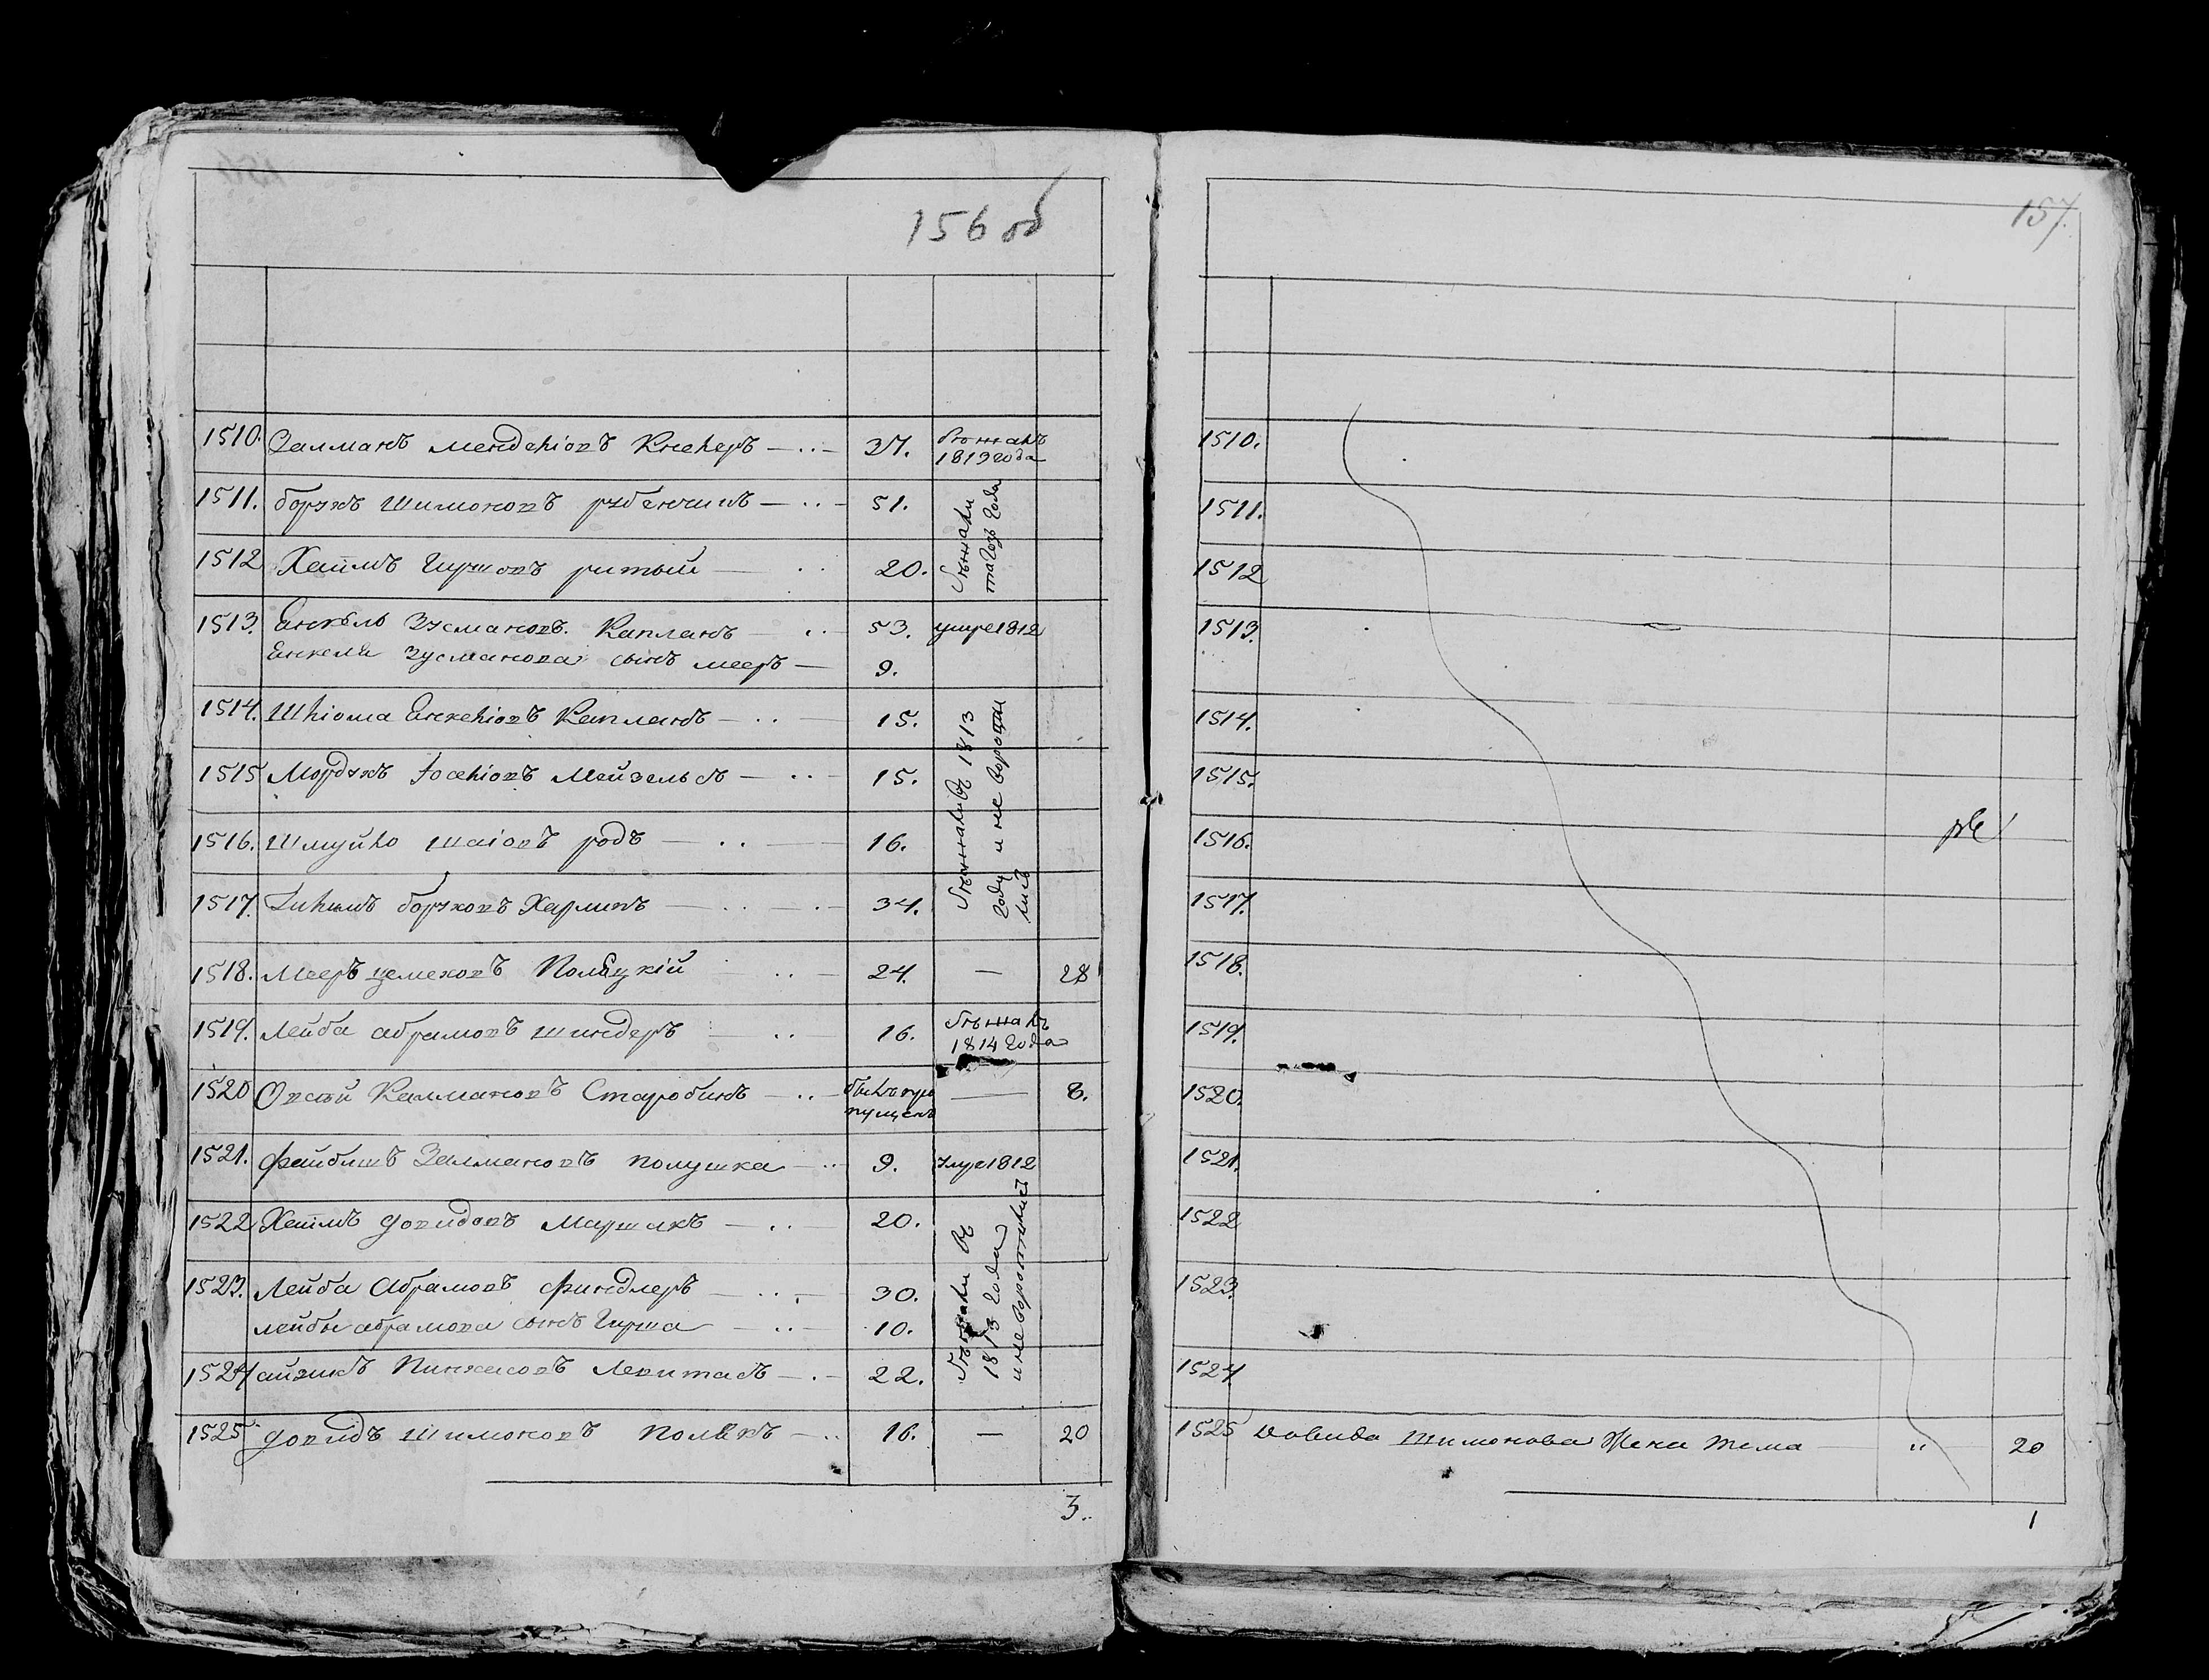 156 об
1510. Залманъ Менделіовъ Кнелеръ — 37. бѣжалъ
1813 года
1511. Борухъ Шимоновъ рубенчикъ — 51.
1512 Хаимъ Гиршовъ ритый — 20.
бѣжали
тагожъ года
1513. Енкель Зусмановъ Капланъ — 53. умре 1812
Енкеля Зусманова сынъ мееръ — 9.
1514. Шліома Енкеліовъ Капланъ — 15.
1515 Мордухъ Іоселіовъ Мейзельсъ — 15.
1516. Шмуйло Шаіовъ родъ — 16.
1517. борухов Харикъ — 34.
бѣжали въ 1813
году и не вороти
лись
1518. Мееръ цемеховъ Полѣцкій — 24. — 28
1519. Лейба абрамовъ шиндеръ — 16. бѣжалъ
1814 года
1520 Овсѣй Калмановъ Старобинъ — былъ про
пущенъ — 8.
1521. Файбишъ Залмановъ полушка — 9. умре 1812
1522 Хаимъ Довидовъ Маршакъ — 20.
1523. Лейба Абрамовъ Финдлеръ — 30.
лейбы абрамова сынъ Гирша — 10.
1524 айзикъ Пинхасовъ Левитасъ — 22.
бѣжали въ
1813 года
и не воротились
1525 Довидъ Шимоновъ Полякъ — 16. — 20
3.
157.
1510.
1511.
1512
1513.
1514.
1515.
1516.
1517.
1518.
1519.
1520.
1521.
1522
1523.
1524
1525 Давида Шимонова Жена Тема — " 20
1